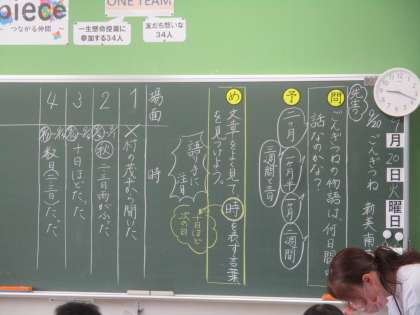 piece
~ つながる仲間 ~
ONE TEAM
一生懸命授業に
参加する34人
友だち想いな
34人
9月20日火曜日
9/20 ごんぎつね 新美南
問 ごんぎつねの物語は、何日間の
話なのかな?
予
二ヶ月
一ヶ月半
一ヶ月
二週間
三週間と三日
め 文章をよく見て、時を表す言葉
を見つけよう。
語りに注目
十日ほど
次の日
場面 時
1 ×村の茂平から聞いた
2 秋 二、三日雨がふった
3 十日ほどたった
4 数日(二、三日)たった